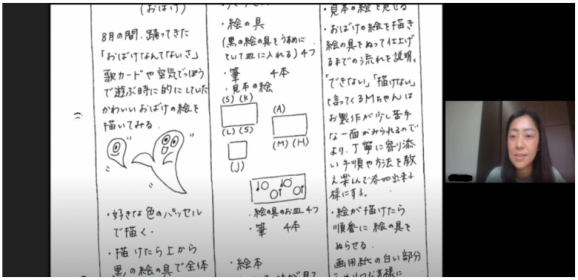 (おばけ)
8月の間、踊ってきた
「おばけなんてないさ」
歌カードや空気でっぽう
で遊ぶ時に的にしていた
かわいいおばけの絵を
描いてみる。
・好きな色のパッセル
で描く。
・描けたら上から
黒の絵の具で全体
・絵の具
(黒の絵の具をうすめに
といて皿に入れる)4つ
・筆 4本
・見本の絵
(S)(K)
(A)
(L)(S)
(M)(H)
(J)
・絵の具のお皿 4つ
・筆 4本
・絵本
・見本の絵を見せる
・おばけの絵を描き
絵の具をぬって仕上げ
るまでの流れを説明。
「できない」「描けない」
と言ってくるMちゃんは
お製作が少し苦手
な一面がみられるので
より、丁寧に寄り添
い手順や方法を教
様にする。
・絵が描けたら
順番に絵の具を
ぬらせる。
画用紙の白い部分